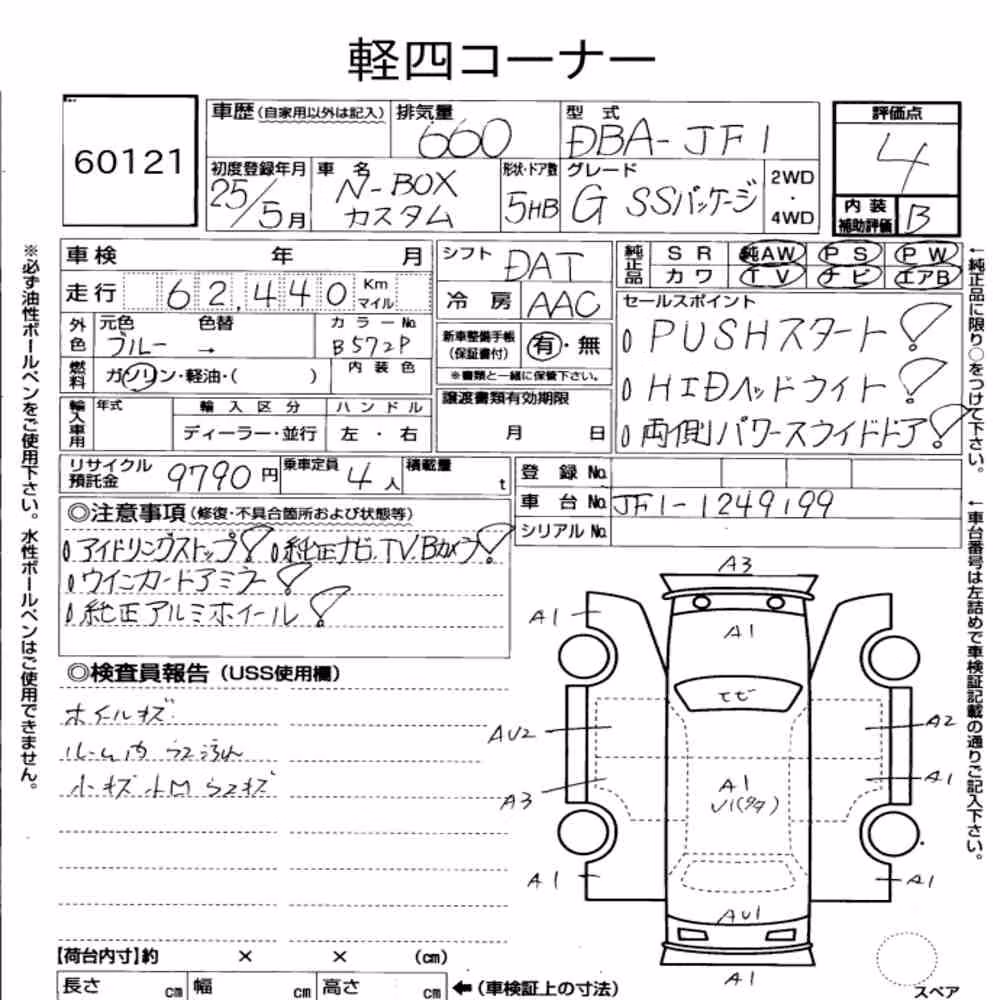 軽四コーナー
60121
車歴 (自家用以外は記入) 排気量 660 型式 DBA-JF1
評価点 4
内装補助評価 B
初度登録年月 25/5月 車名 N-BOX カスタム 形状・ドア数 5HB グレード G SSパッケージ 2WD・4WD
車検 年 月
シフト DAT
純正品 SR 純AW PS PW
カワ TV ナビ エアB
走行 62,440 Km マイル
冷房 AAC
外色 元色 ブルー → 色替 カラーNo. B572P
新車整備手帳 (保証書付) 有・無
※書類と一緒に保管下さい。
燃料 ガソリン・軽油・( ) 内装色
輸入車用 年式 輸入区分 ハンドル
ディーラー・並行 左・右
譲渡書類有効期限
月 日
セールスポイント
PUSHスタート!
HIDヘッドライト!
両側パワースライドドア!
リサイクル預託金 9790円 乗車定員 4人 積載量 t
登録No.
車台No. JF1-1249199
シリアルNo.
◎注意事項 (修復・不具合箇所および状態等)
アイドリングストップ! 純正ナビ.TV.Bカメラ!
ウインカードアミラー!
純正アルミホイール!
◎検査員報告 (USS使用欄)
ホイールキズ
ルーム内 ラゲ汚れ
小キズ 小M ラゲキズ
A3
A1
A1
トビ
AU2
A2
A3
A1
A1
A1
A1
AU1
A1
【荷台内寸】約 × × (cm)
長さ cm 幅 cm 高さ cm ←(車検証上の寸法)
スペア
※必ず油性ボールペンをご使用下さい。水性ボールペンはご使用できません。
←純正品に限り○をつけて下さい。
←車台番号は左詰めで車検証記載の通りご記入下さい。